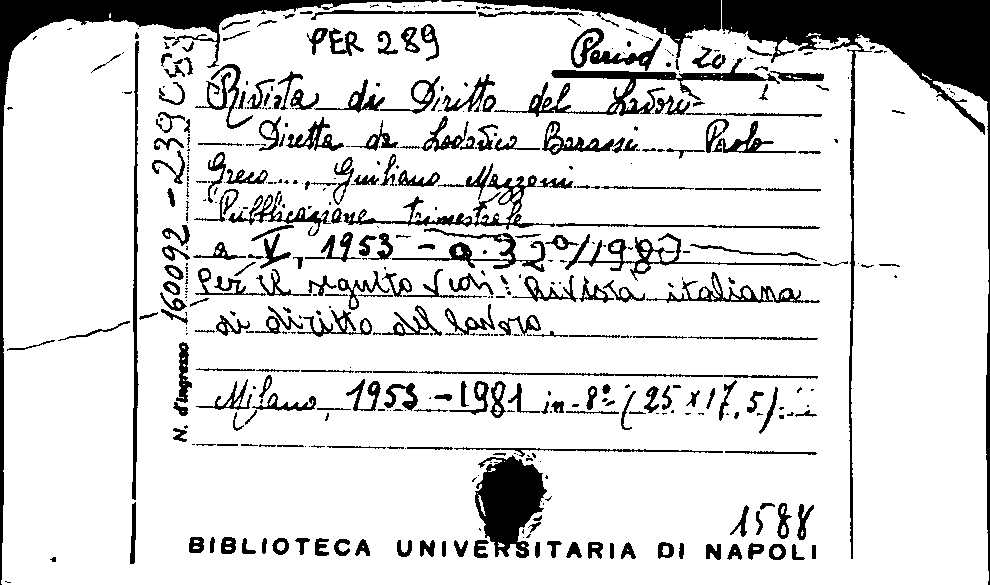 PER 289
Period. 20
Rivista di Diritto del Lavoro
Diretta da Lodovico Barassi ..., Paolo
Greco ..., Giuliano Mazzoni
Pubblicazione trimestrale
a. V, 1953 - a. 32°/1980
Per il seguito vedi: Rivista italiana
di diritto del lavoro.
Milano, 1953 - 1981 in-8° (25 x 17,5).
N. d'ingresso 160092 - 239083
1588
BIBLIOTECA UNIVERSITARIA DI NAPOLI